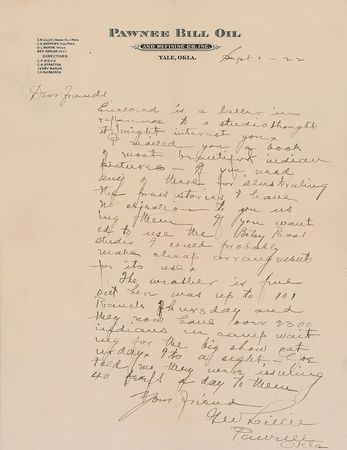 PAWNEE BILL OIL
AND REFINING CO. INC.
YALE, OKLA.
DIRECTORS
Sept 1 - 22
Dear Friends
Enclosed is a letter in
reference to a studio thought
it might interest you
I mailed you a book
of most beautiful indian
pictures - If you need
any of these for elustrating
the press stories I have
no objection to you us
ing them If you want
us to use the
studio I could probably
make cheap arrangments
for its use
The weather is fine
out here was up to 101
Ranch Thursday and
they now have over 2300
indians in camp wait
ing for the big show
told me they were issuing
40 beefs a day to them
Your Friend
Geo Lillie
Pawnee
Okla